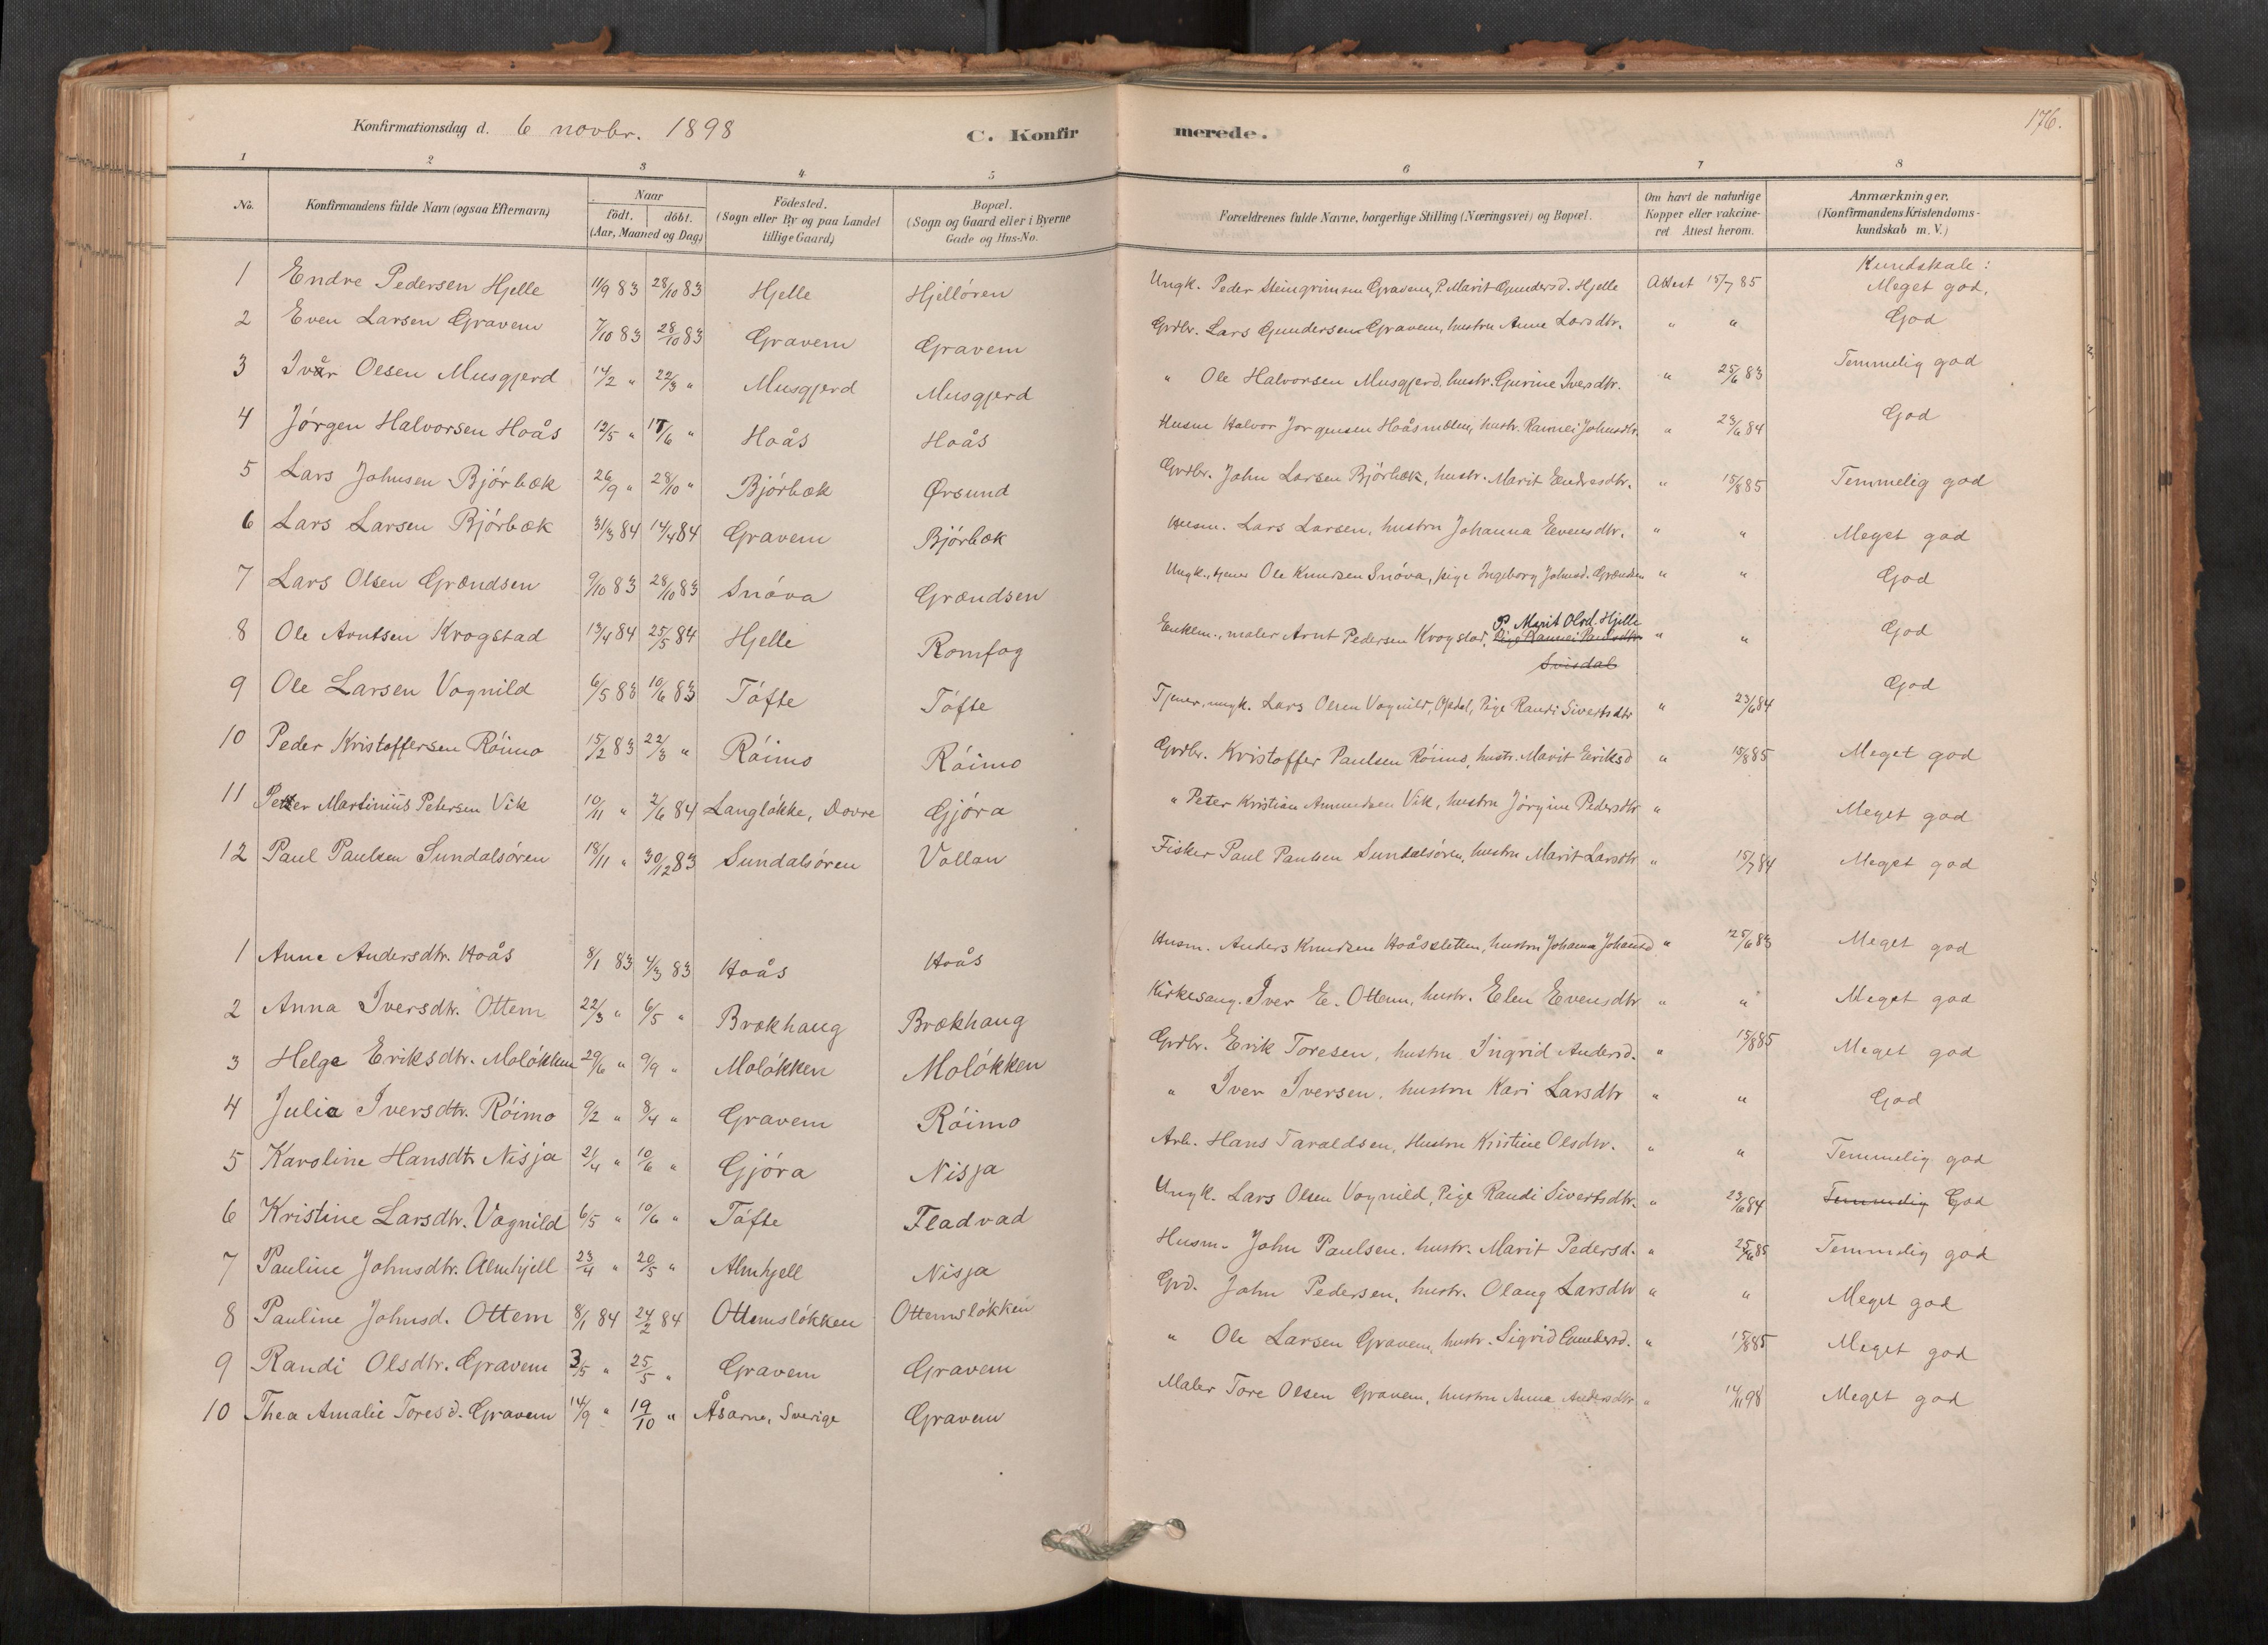 Konfirmationsdag d. 6 novbr. 1898 C. Konfirmerede. 176.
1 2 3 4 5 6 7 8
No. Konfirmandens fulde Navn (ogsaa Efternavn) Naar födt. döbt. (Aar, Maaned og Dag) Födested. (Sogn eller By og paa Landet tillige Gaard) Bopæl. (Sogn og Gaard eller i Byerne Gade og Hus-No. Forældrenes fulde Navne, borgerlige Stilling (Næringsvei) og Bopæl. Om havt de naturlige Kopper eller vakcineret Attest herom. Anmærkninger, (Konfirmandens Kristendomskundskab m. V.)
Kundskab:
1 Endre Pedersen Hjelle 11/9 83 28/10 83 Hjelle Hjellören Ungk. Peder Steingrimsen Gravem, P. Marit Gundersd. Hjelle Attest 15/7 85 Meget god.
2 Even Larsen Gravem 7/10 83 28/10 83 Gravem Gravem Grdbr. Lars Gundersen Gravem, hustru Anne Larsdtr. " " God
3 Ivår Olsen Musgjerd 14/2 " 22/3 " Musgjerd Musgjerd " Ole Halvorsen Musgjerd, hustr. Gurine Iversdtr. " 25/6 83 Temmelig god
4 Jörgen Halvorsen Hoås 12/5 " 17/6 " Hoås Hoås Husm Halvor Jorgensen Hoåsmælen, hustr. Rannei Johnsdtr. " 23/6 84 God
5 Lars Johnsen Bjórbæk 26/9 " 28/10 " Bjórbæk Ørsund Grdbr. John Larsen Bjórbæk, hustr. Marit Endresdtr. " 15/8 85 Temmelig god
6 Lars Larsen Bjórbæk 31/3 84 14/4 84 Gravem Bjórbæk Husm. Lars Larsen, hustru Johanna Evensdtr. " " Meget god
7 Lars Olsen Grændsen 9/10 83 28/10 83 Snóva Grændsen Ungk., tjener Ole Knudsen Snóva, pige Ingeborg Johnsd. Grændsen " " God
8 Ole Arntsen Krogstad 13/4 84 25/5 84 Hjelle Romfog Enkem., maler Arnt Pedersen Krogstad, P. Marit Olsd. Hjelle Pige Rannei Paulsdtr. " " God
Svisdal
9 Ole Larsen Vognild 6/5 83 10/6 83 Tófte Tófte Tjener, ungk. Lars Olsen Vognild, Opdal, Pige Randi Sivertsdtr " 23/6 84 God
10 Peder Kristoffersen Róimo 15/2 83 22/3 " Róimo Róimo Grdbr. Kristoffer Paulsen Róimo, hustr. Marit Eriksd " 15/8 85 Meget god
11 Petter Martinius Petersen Vik 10/11 " 2/6 84 Langlókke, Dovre Gjóra " Peter Kristian Amundsen Vik, hustru Jörgine Pedersdtr " Meget god
12 Paul Paulsen Sundalsóren 18/11 " 30/12 83 Sundalsóren Vollan Fisker Paul Paulsen Sundalsóren, hustru Marit Larsdtr " 15/7 84 Meget god
1 Anne Andersdtr. Hoås 8/1 83 4/3 83 Hoås Hoås Husm. Anders Knudsen Hoåssletten, hustru Johanna Johansd " 25/6 83 Meget god
2 Anna Iversdtr. Ottem 22/3 " 6/5 " Brækhaug Brækhaug Kirkesang. Iver E. Ottem, hustr. Elen Evensdtr " " Meget god
3 Helga Eriksdtr. Molökken 29/6 " 9/9 " Molókken Molókken Grdbr. Erik Toresen, hustru Ingrid Andersd. " 15/8 85 Meget god
4 Julia Iversdtr. Róimo 9/2 " 8/4 " Gravem Róimo " Iver Iversen, hustru Kari Larsdtr " " God
5 Karoline Hansdtr Nisja 21/4 " 10/6 " Gjóra Nisja Arb. Hans Taraldsen, Hustru Kristine Olsdtr. " " Temmelig god
6 Kristine Larsdtr. Vognild 6/5 " 10/6 " Tófte Fladvad Ungk. Lars Olsen Vognild, Pige Randi Sivertsdtr. " 23/6 84 Temmelig God
7 Pauline Johnsdtr. Almhjell 23/4 " 20/5 " Almhjell Nisja Husm. John Paulsen, hustr. Marit Pedersd. " 25/6 85 Temmelig god
8 Pauline Johnsd. Ottem 8/1 84 24/2 84 Ottemslókken Ottemslókken Grd. John Pedersen, hustr. Olaug Larsdtr " " Meget god
9 Randi Olsdtr. Gravem 3/5 " 25/5 " Gravem Gravem " Ole Larsen Gravem, hustr. Sigrid Gundersd. " 15/8 85 Meget god
10 Thea Amalie Toresd. Gravem 14/9 " 19/10 " Åsarne, Sverige Gravem Maler Tore Olsen Gravem, hustru Anna Andersdtr " 14/11 98 Meget god